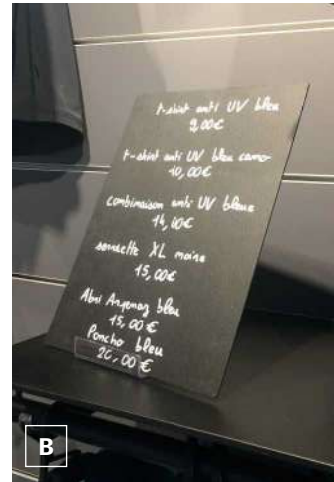 t-shirt anti UV bleu
9,00€
t-shirt anti UV bleu camo
10,00€
combinaison anti UV bleue
14,00€
serviette XL marine
15,00€
Abri bleu
15,00€
Poncho bleu
20,00€
B